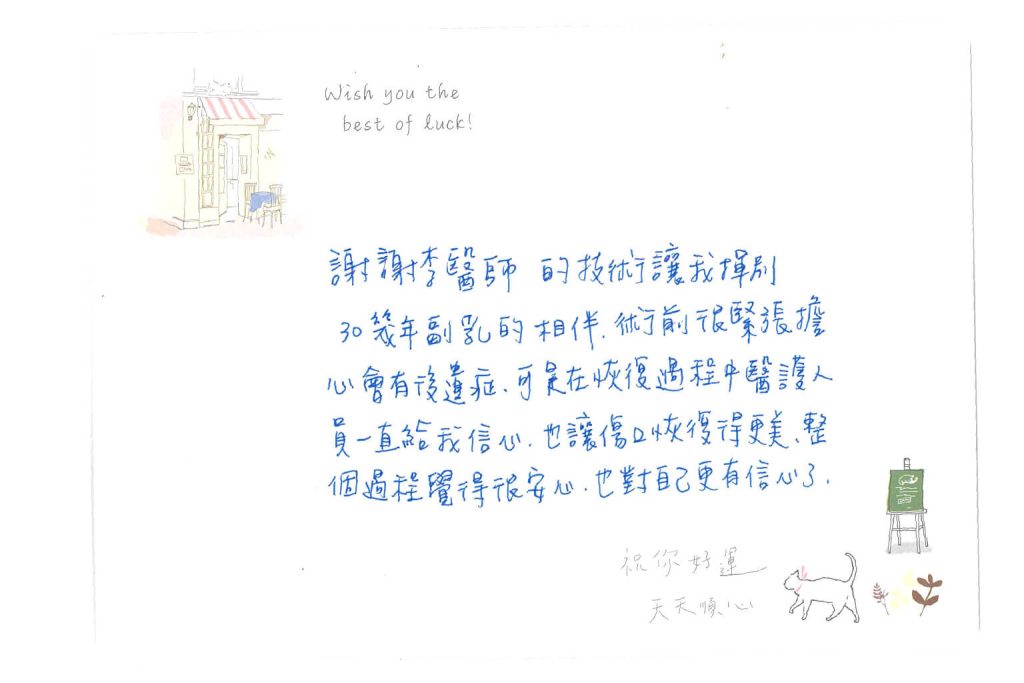 Wish you the
best of luck!
謝謝李醫師 的技術讓我揮別
30幾年副乳的相伴.術前很緊張擔
心會有後遺症、可是在恢復過程中醫護人
員一直給我信心.也讓傷口恢復得更美、整
個過程覺得很安心.也對自己更有信心了.
祝你好運
天天順心